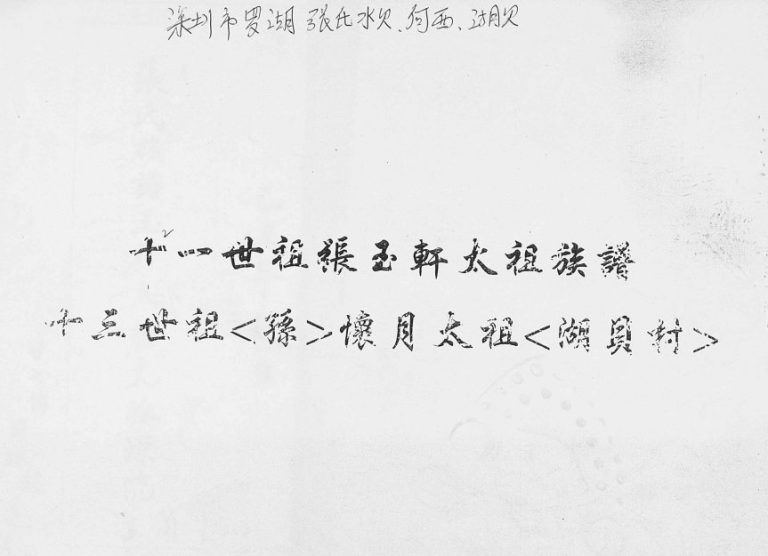 深圳市罗湖張氏水贝、向西、湖贝
十一世祖張玉軒太祖族譜
十三世祖<孫>懷月太祖<湖貝村>